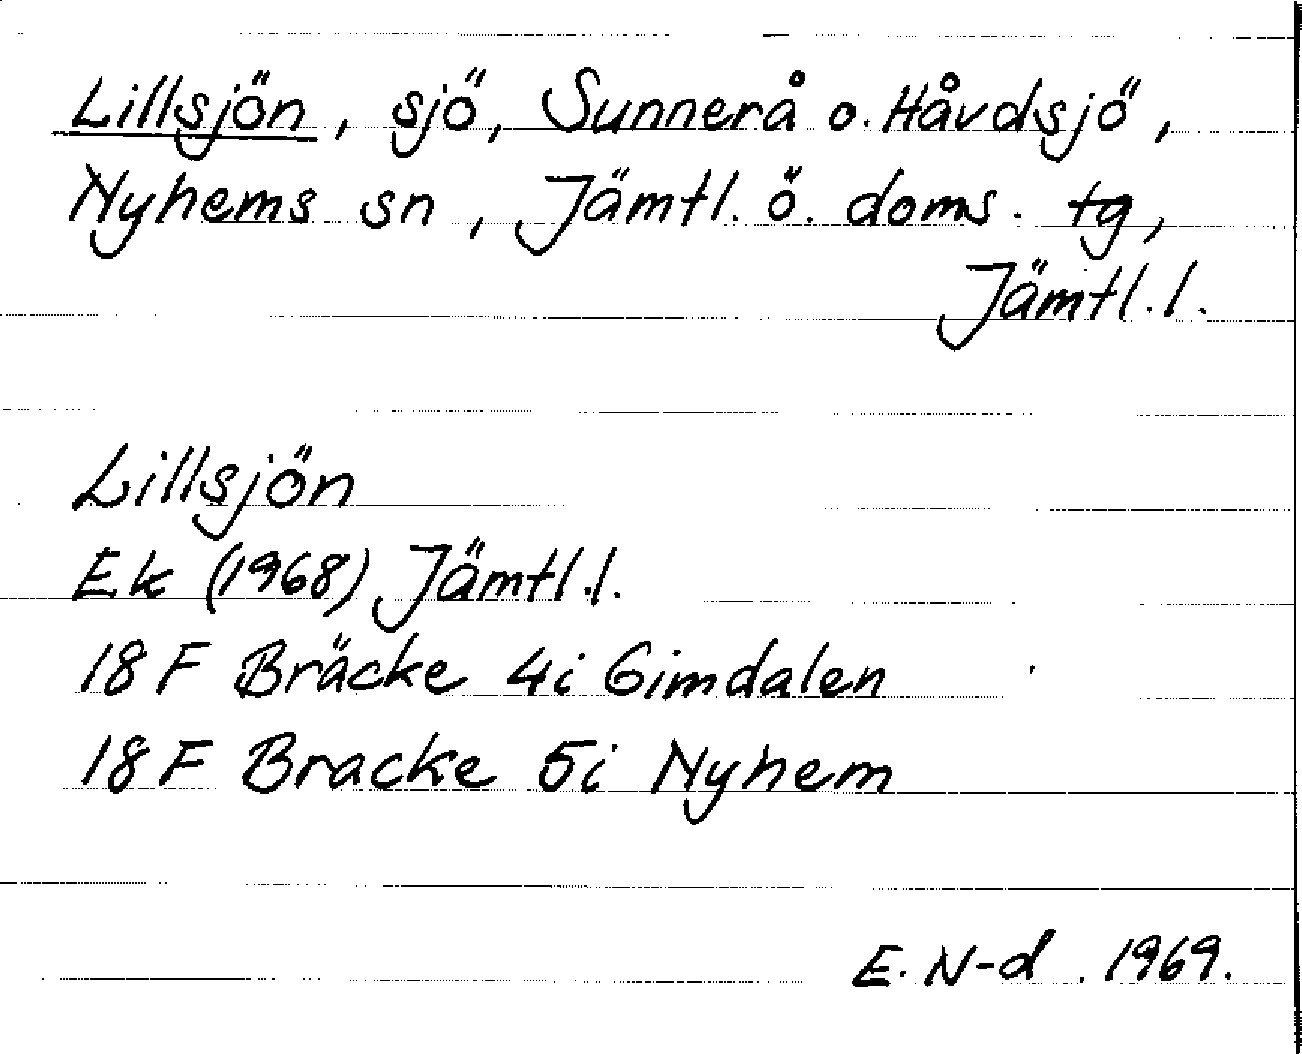 Lillsjön, sjö, Sunnerå o. Håvdsjö,
Nyhems sn, Jämtl. ö. doms. tg,
Jämtl. l.
Lillsjön
Ek (1968) Jämtl. l.
18 F Bräcke 4i Gimdalen
18 F Bracke 5i Nyhem
E. N-d. 1969.